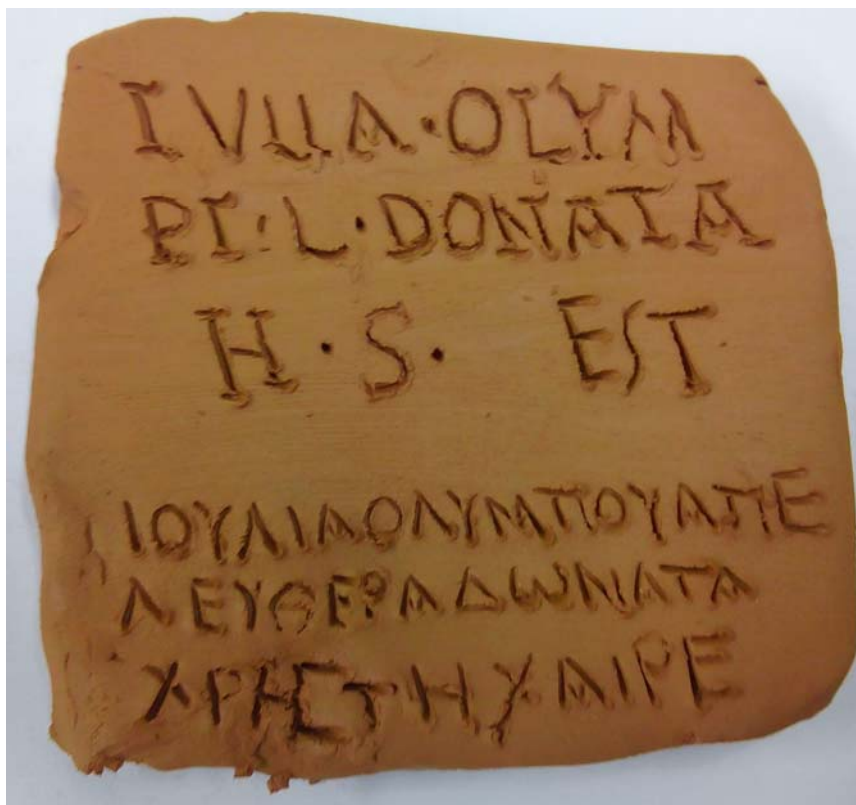 IVLIA·OLYM
PI·L·DONATA
H·S· EST
ΙΟΥΛΙΑΟΛΥΜΠΟΥΑΠΕ
ΛΕΥΘΕΡΑΔΩΝΑΤΑ
ΧΡΗΣΤΗΧΑΙΡΕ